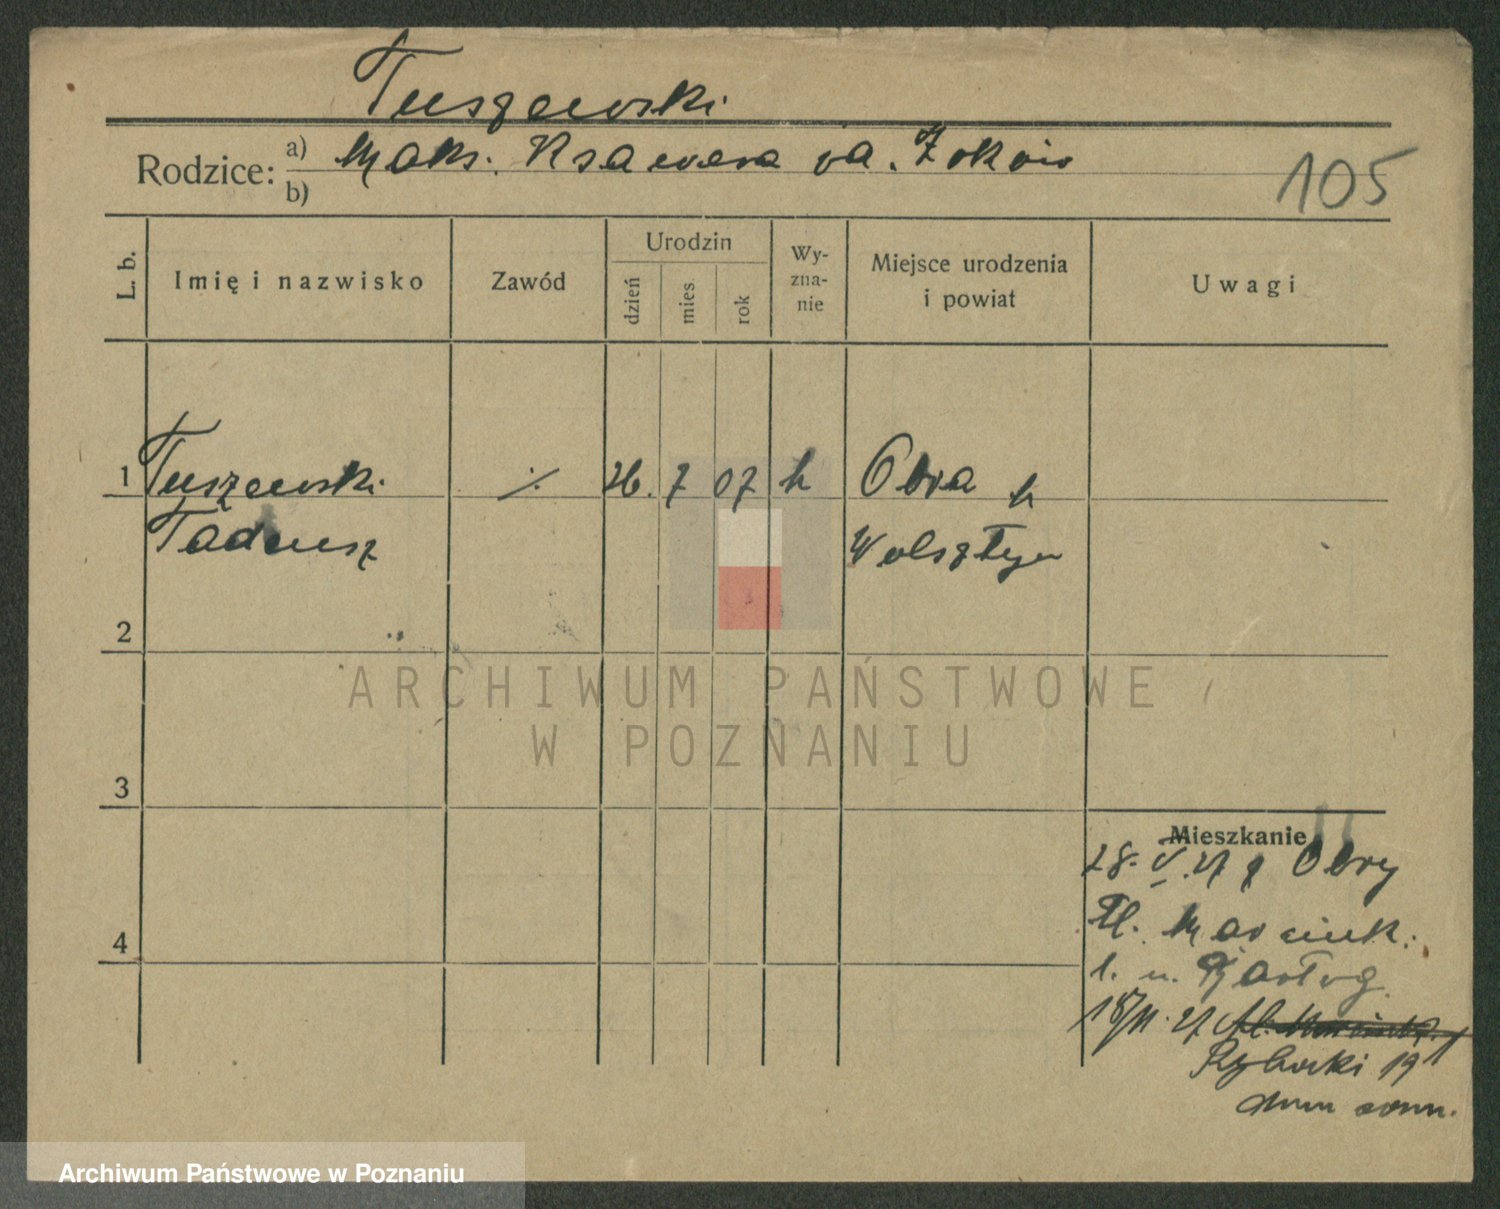 Tuszewski
Rodzice: a) Maks. Ksawera
b)
105
L. b.
Imię i nazwisko
Zawód
Urodzin
dzień
mies.
rok
Wy-
zna-
nie
Miejsce urodzenia
i powiat
Uwagi
1 Tuszewski 26. 7 07 k Obra k
Tadeusz Wolsztyn
2
3
4
Mieszkanie
28. V. 27 z Obry
Pl. Marcink.
18/11. 27
Rybaki 19
ARCHIWUM PAŃSTWOWE
W POZNANIU
Archiwum Państwowe w Poznaniu